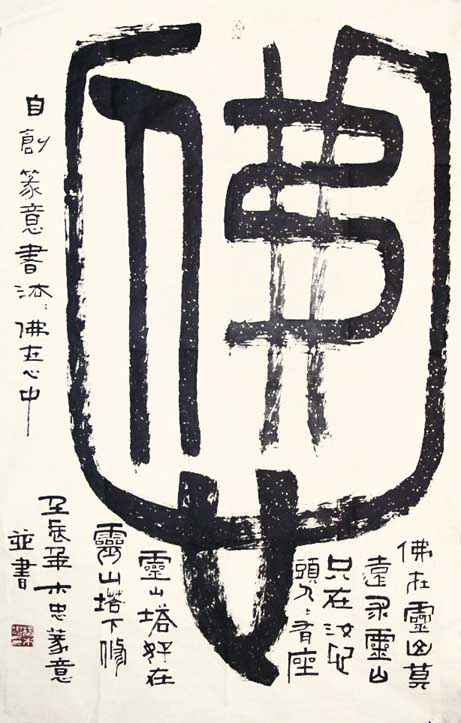 佛心
佛在靈山莫
遠求靈山
只在汝心
頭人々有座
靈山塔好在
靈山塔下修
自創篆意書法：佛在心中
壬辰年木忠篆意
並書